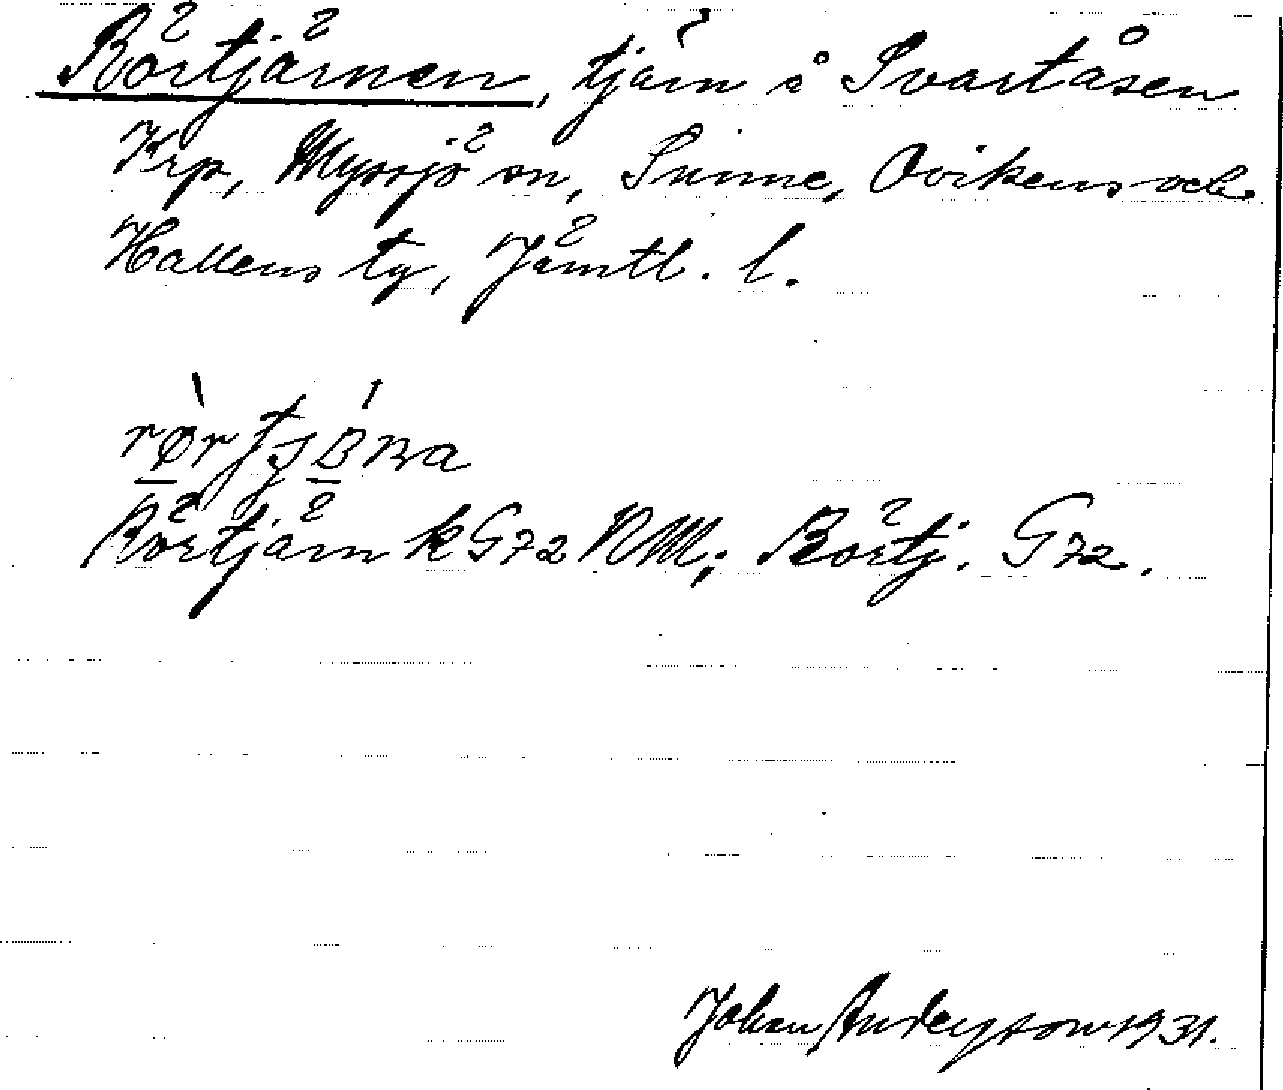 Rörtjärnen, tjärn i Svartåsen
Krp, Myssjö sn, Sunne, Ovikens och
Hallens tg, Jämtl. l.
Rörtjärn k G72 NM; Rörtj. G72.
Johan Andersson 1931.